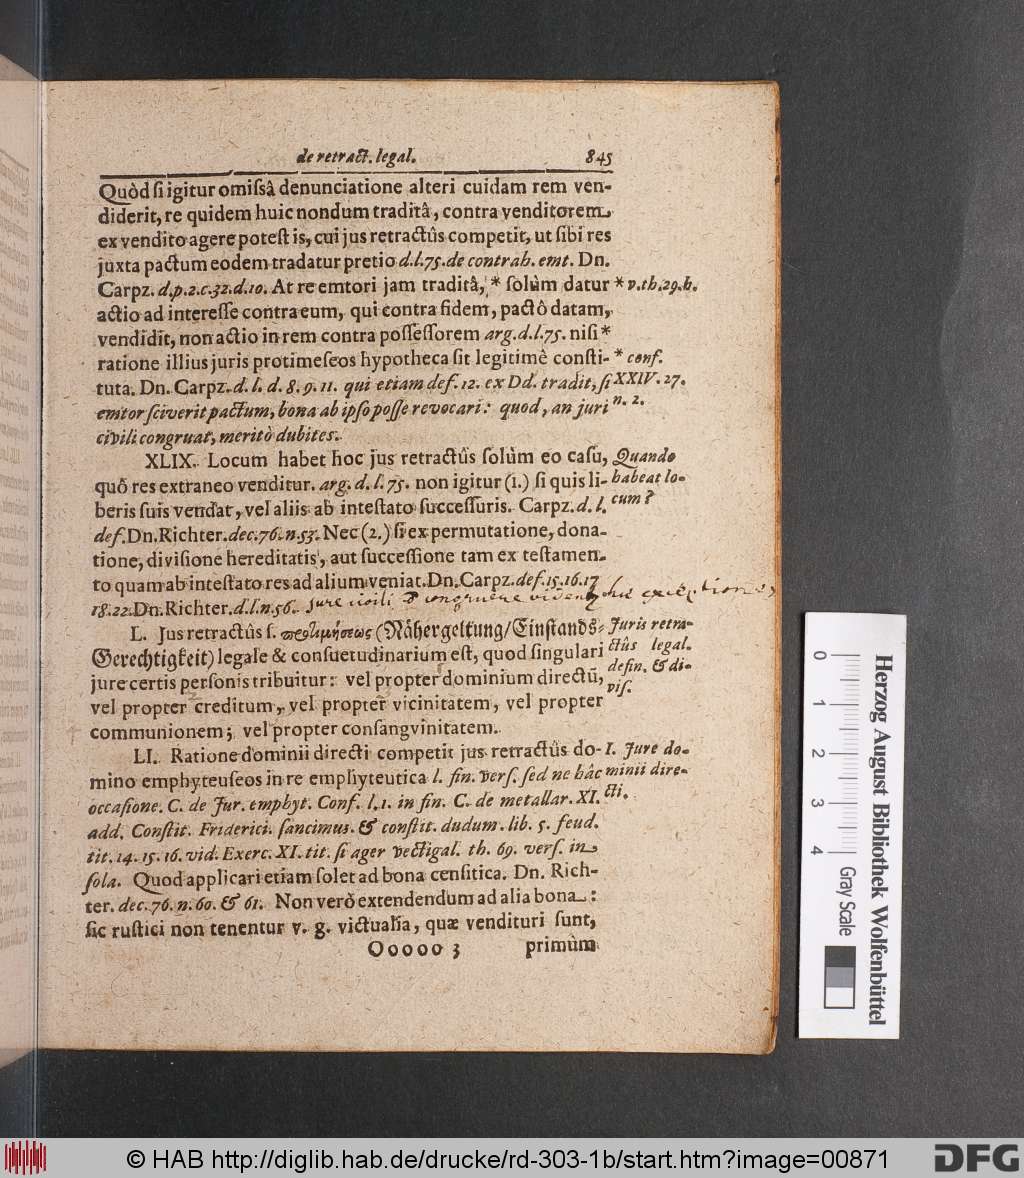 de retract. legal. 845
Quòd si igitur omissâ denunciatione alteri cuidam rem ven-
diderit, re quidem huic nondum traditâ, contra venditorem
ex vendito agere potest is, cui jus retractûs competit, ut sibi res
juxta pactum eodem tradatur pretio d.l.75. de contrah. emt. Dn.
Carpz. d.p.2.c.32.d.10. At re emtori jam traditâ, * solùm datur * v.th.29.h.
actio ad interesse contra eum, qui contra fidem, pactô datam,
vendidit, non actio in rem contra possessorem arg.d.l.75. nisi *
ratione illius juris protimeseos hypotheca sit legitimè consti- * conf.
tuta. Dn. Carpz. d. l. d. 8. 9. 11. qui etiam def. 12. ex Dd. tradit, si XXIV. 27.
emtor sciverit pactum, bona ab ipso posse revocari: quod, an juri n. 2.
civili congruat, meritò dubites.
XLIX. Locum habet hoc jus retractûs solùm eo casu, Quando
quô res extraneo venditur. arg. d. l. 75. non igitur (1.) si quis li- habeat lo-
beris suis vendat, vel aliis ab intestato successuris. Carpz. d. l. cum?
def. Dn. Richter. dec. 76. n. 53. Nec (2.) si ex permutatione, dona-
tione, divisione hereditatis, aut successione tam ex testamen-
to quam ab intestato res ad alium veniat. Dn. Carpz. def. 15. 16. 17
18. 22. Dn. Richter. d. l. n. 56. jure civili
L. Jus retractûs s. προτιμήσεως (Nähergeltung/Einstands- Juris retra-
Gerechtigkeit) legale & consuetudinarium est, quod singulari ctûs legal.
jure certis personis tribuitur: vel propter dominium directũ, defin. & di-
vel propter creditum, vel propter vicinitatem, vel propter vis.
communionem; vel propter consangvinitatem.
LI. Ratione dominii directi competit jus retractûs do- I. Jure do-
mino emphyteuseos in re emphyteutica l. fin. vers. sed ne hâc minii dire-
occasione. C. de Jur. emphyt. Conf. l. 1. in fin. C. de metallar. XI. cti.
add. Constit. Friderici. sancimus. & constit. dudum. lib. 5. feud.
tit. 14. 15. 16. vid. Exerc. XI. tit. si ager vectigal. th. 69. vers. in
sola. Quod applicari etiam solet ad bona censitica. Dn. Rich-
ter. dec. 76. n. 60. & 61. Non verò extendendum ad alia bona:
sic rustici non tenentur v. g. victualia, quæ vendituri sunt,
Ooooo 3 primùm
0 1 2 3 4 Gray Scale
Herzog August Bibliothek Wolfenbüttel
© HAB http://diglib.hab.de/drucke/rd-303-1b/start.htm?image=00871
DFG